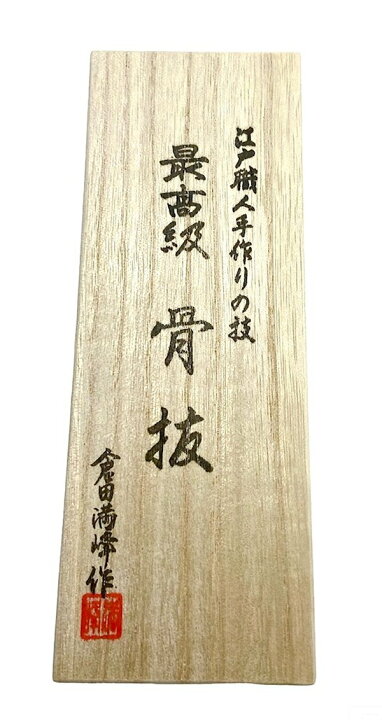 江戸職人手作りの技
最高級 骨抜
倉田満峰作